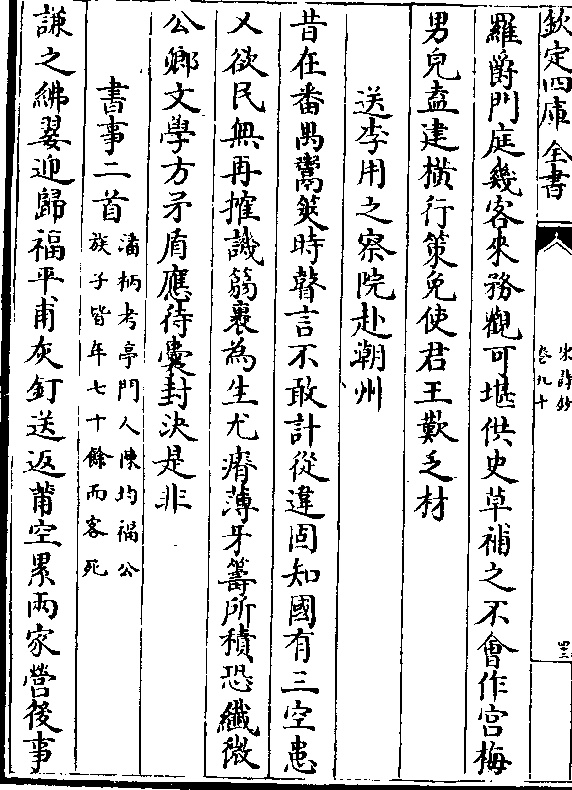 欽定四庫全書
宋詩鈔
卷九十
四三
羅爵門庭幾客來務觀可堪供史草補之不會作宮梅
男兒盍建橫行策免使君王歎乏材
送李用之察院赴潮州
昔在番禺鬻筴時瞽言不敢計從違固知國有三空患
又欲民無再搉譏篛裹為生尤瘠薄牙籌所積恐纖微
公卿文學方矛盾應待囊封決是非
書事二首
潘柄考亭門人陳均福公
族子皆年七十餘而客死
謙之紼翣迎歸福平甫灰釘送返莆空累兩家營後事